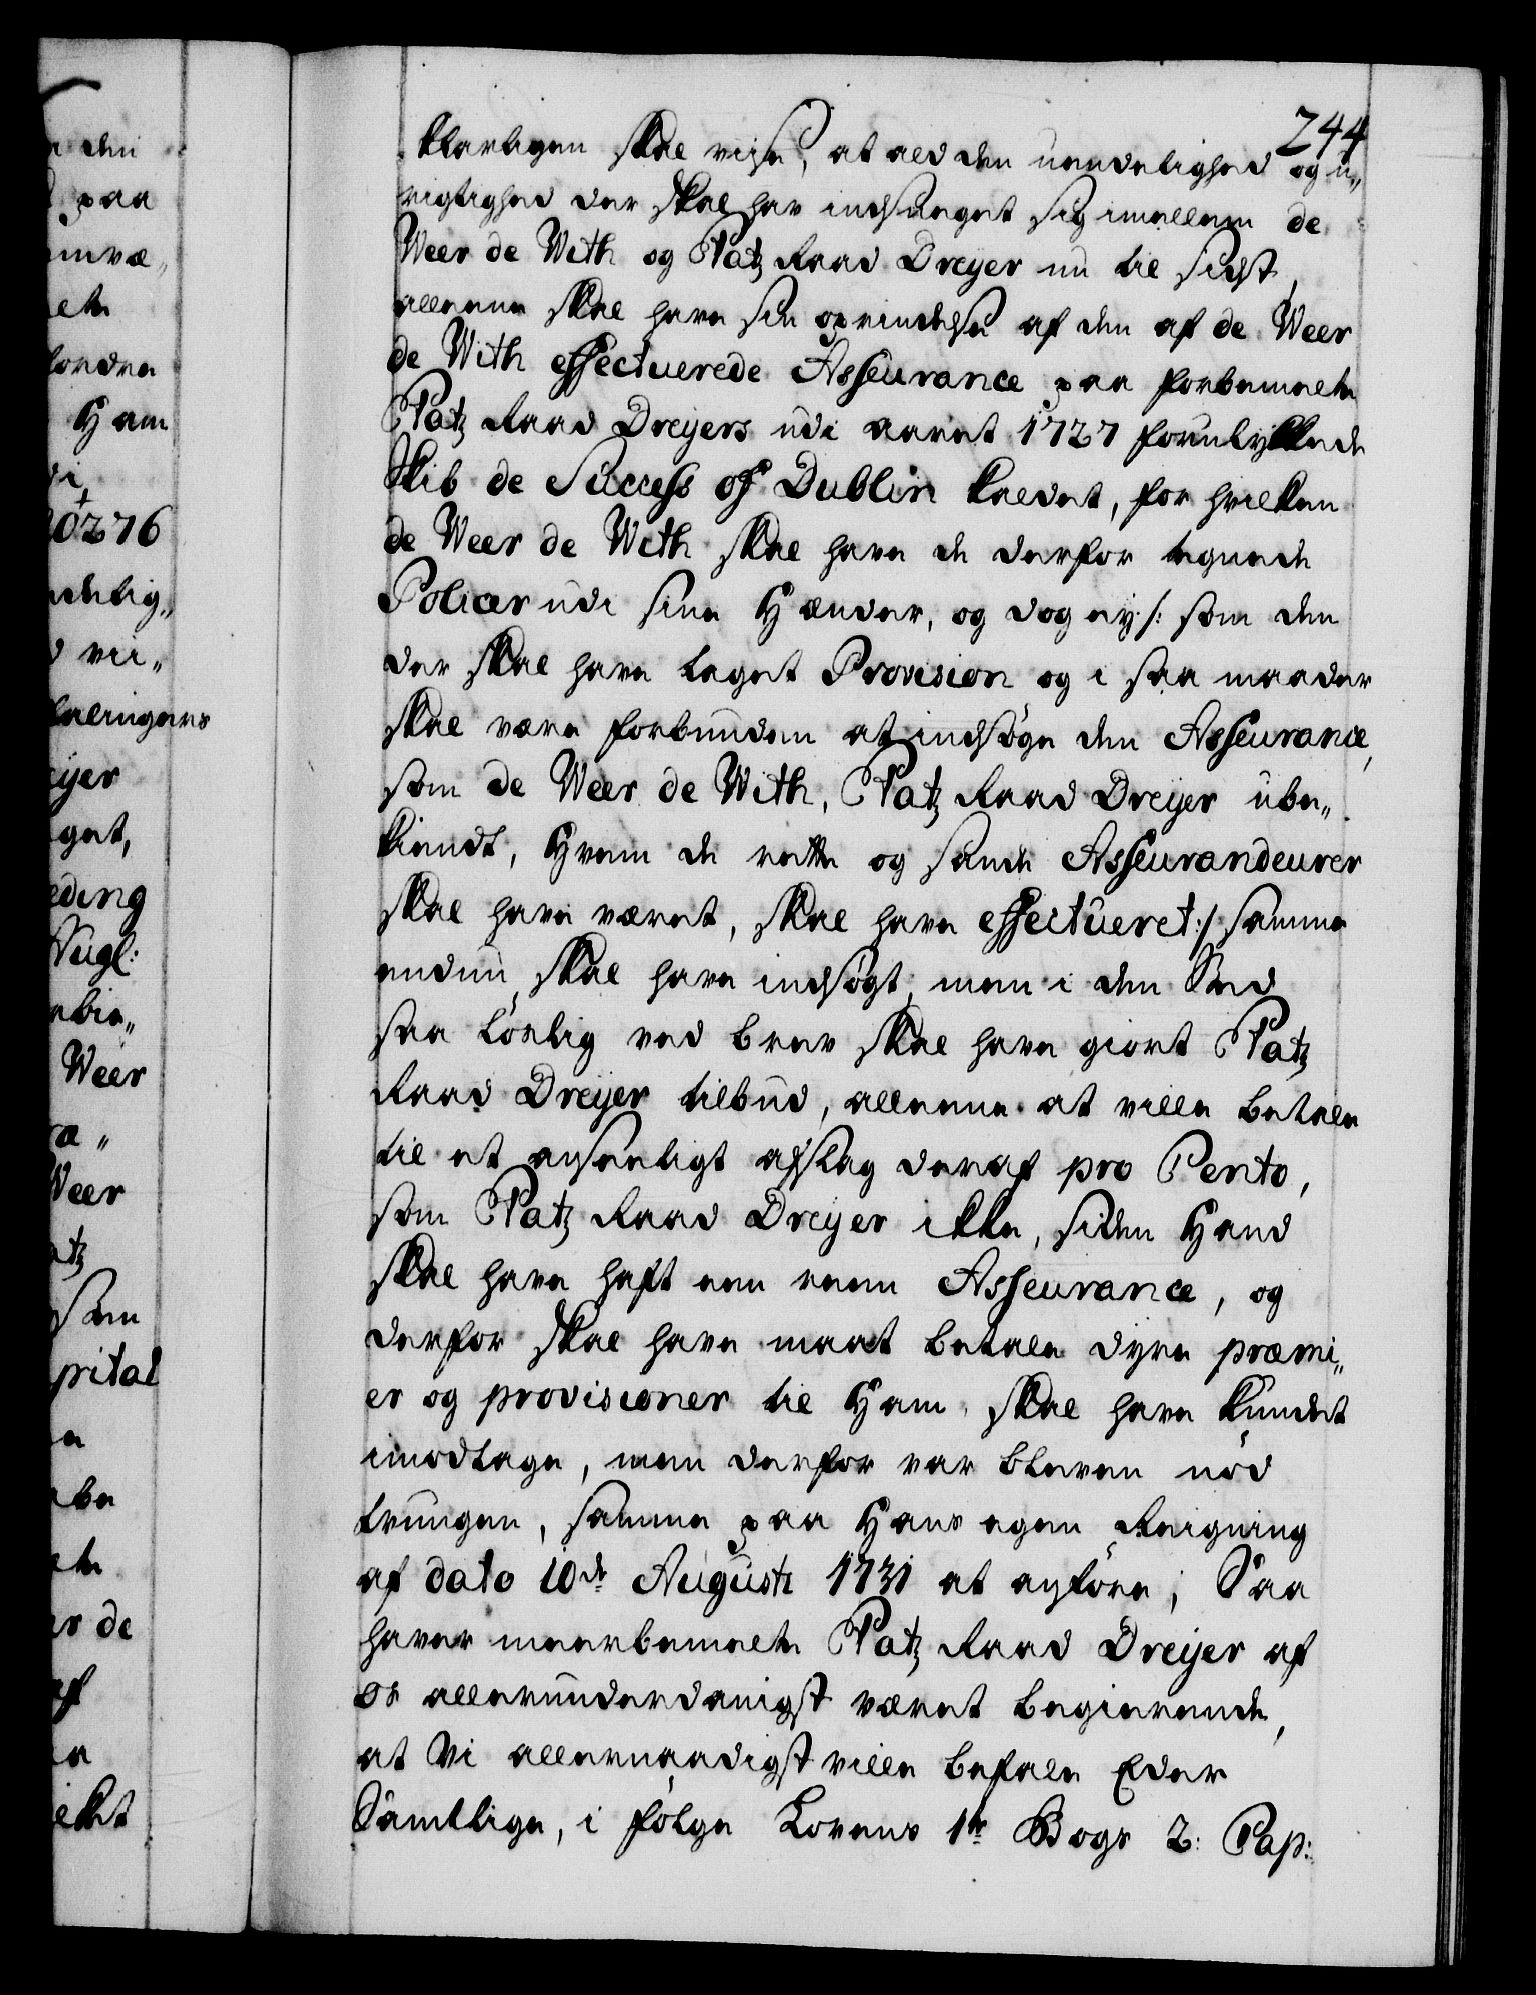 244
klarligen skal viise, at ald den uendelighed og u„
rigtighed der skal har indsneget sig imellem de
Weer de With og Etatz Raad Dreyer nu til sidst,
alleene skal have sin oprindelse af den af de Weer
de With effectuerede Asseurance paa forbemelte
Etatz Raad Dreyers udi aaret 1727 forulykkede
Skib de Success of Dublin kaldet, for hvilken
de Weer de With skal have de derfor tegnede
Policer udi sine Hænder, og dog ey /: som den
der skal have taget Provision og i saa maader
skal være forbunden at indsøge den Asseurance,
som de Weer de With, Etatz Raad Dreyer ube„
kiendt, Hvem de rette og sande Asseurandeurer
skal have været, skal have effectueret :/ samme
endnu skal have indsøgt, men i den Sted
saa løslig ved brev skal have giort Etatz
Raad Dreyer tilbud, alleene at ville betale
til et anseeligt afslag deraf pro Cento,
som Etatz Raad Dreyer ikke, siden Hand
skal have haft een reen Asseurance, og
derfor skal have maat betale dyre præmi„
er og provisioner til Ham, skal have kundet
imodtage, men derfor var bleven nød
trungen, samme paa Hans egen Reigning
af dato 10de Augusti 1731 at anføre; Saa
haver meerbemelte Etatz Raad Dreyer af
os allerunderdanigst været begierende,
at Vi allernaadigst ville befale Eder
Samtlige, i følge Lovens 1te Bogs 2: Cap:
den
paa
ordre
Ham
0276
delig„
vii„
talingers
eyer
get,
Weer
Weer
atz
som
pital
er de
af